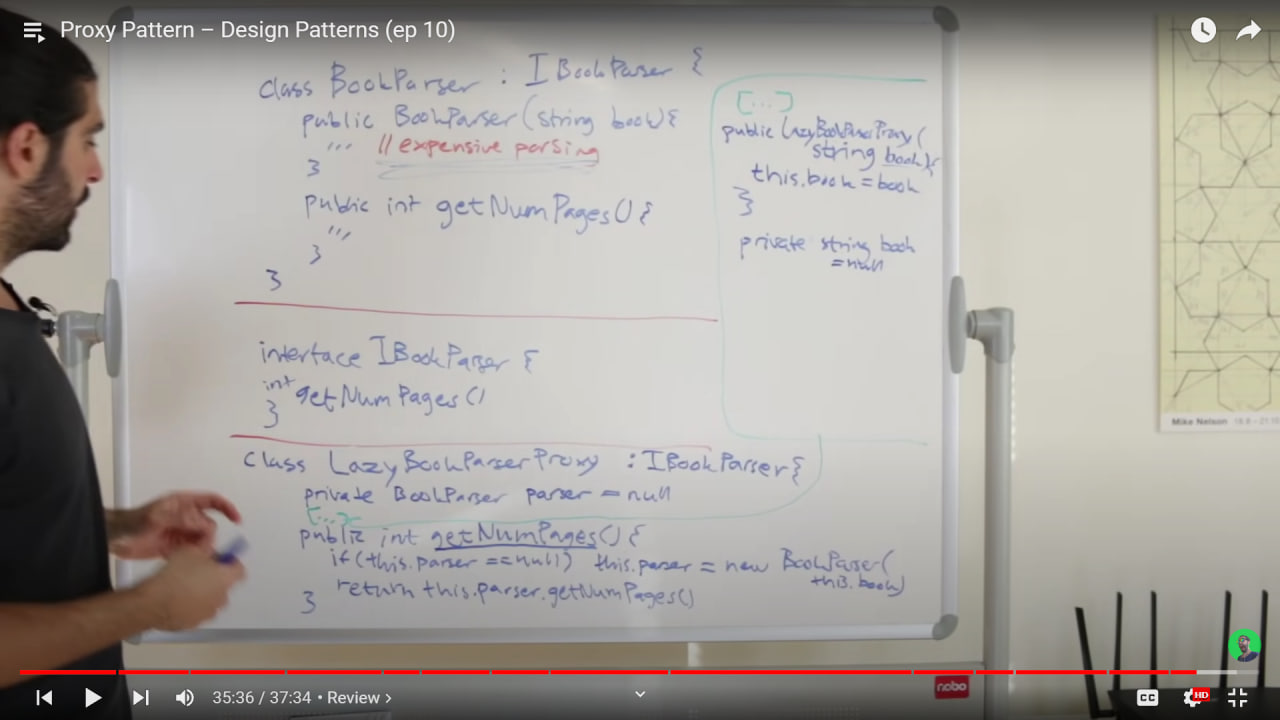 Proxy Pattern – Design Patterns (ep 10)
class BookParser : IBookParser {
public BookParser(string book){
''' // expensive parsing
}
public int getNumPages(){
'''
}
}
interface IBookParser {
int getNumPages()
}
class LazyBookParserProxy : IBookParser{
private BookParser parser = null
[...]
public int getNumPages(){
if(this.parser == null) this.parser = new BookParser(
this.book)
return this.parser.getNumPages()
}
[...]
public LazyBookParserProxy(
string book){
this.book = book
}
private string book
= null
Mike Nelson
nobo
35:36 / 37:34 • Review >
CC
HD